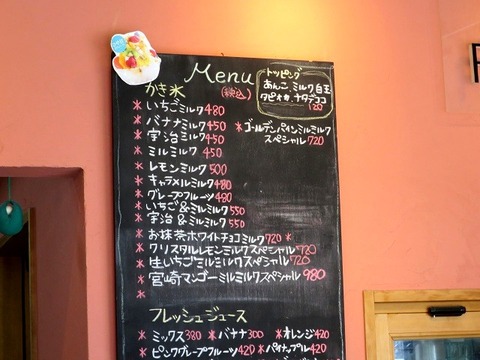 Menu
(税込)
トッピング
あんこ、ミルク白玉
タピオカ、ナタデココ
120
かき氷
* いちごミルク 480
* バナナミルク 450
* 宇治ミルク 450
* ミルミルク 450
* ゴールデンパインミルミルク
スペシャル 720
* レモンミルク 500
* キャラメルミルク 480
* グレープフルーツ 480
* いちご&ミルミルク 550
* 宇治&ミルミルク 550
* お抹茶ホワイトチョコミルク 720 *
* クリスタルレモンミルミルクスペシャル 720
* 生いちごミルミルクスペシャル 720
* 宮崎マンゴーミルミルクスペシャル 980
*
フレッシュジュース
* ミックス 380 * バナナ 300 * オレンジ 420
* ピンクグレープフルーツ 420 * パイナップル 420